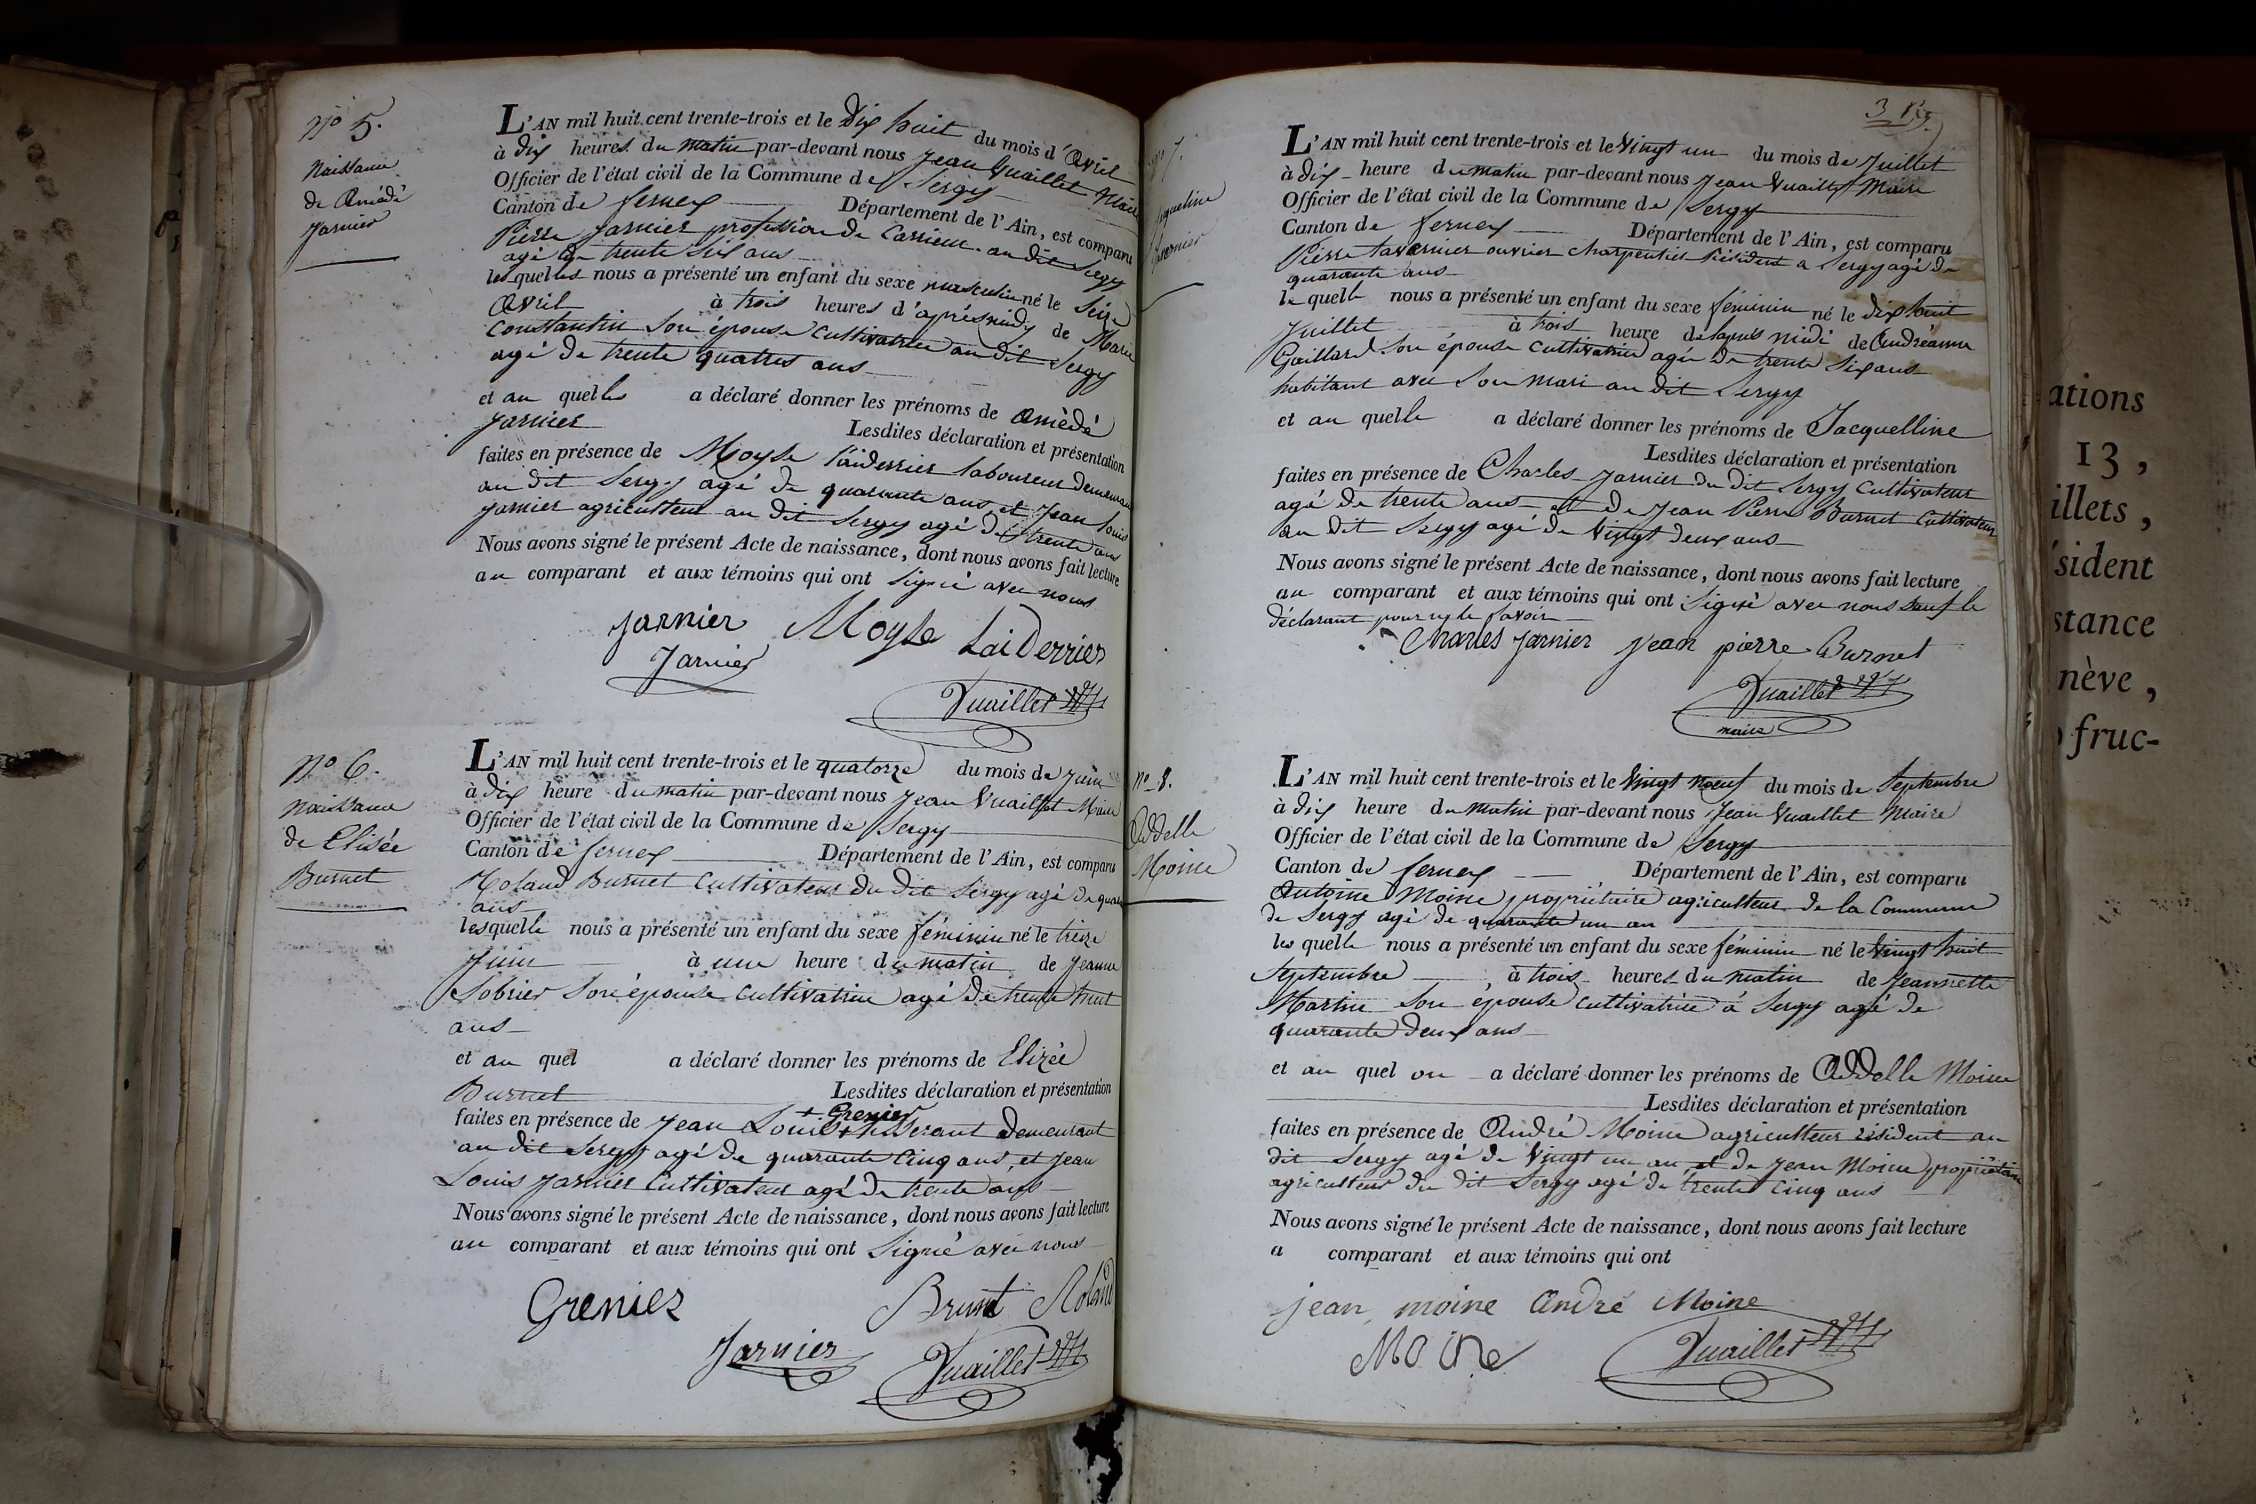 No 5.
Naissance
de Amédé
Jarnier
L'AN mil huit cent trente-trois et le dix huit du mois d'Avril
à dix heures du matin par-devant nous Jean Vuaillet Maire
Officier de l'état civil de la Commune de Sergy
Canton de ferney Département de l'Ain, est comparu
Pierre Jarnier profession de Carrieur au dit Sergy
agé de trente six ans
lesquelles nous a présenté un enfant du sexe masculin né le Seize
Avril à trois heures d'aprèsmidy de Marie
Constantin son épouse cultivatrice au dit Sergy
agé de trente quatres ans
et au quelles a déclaré donner les prénoms de Amèdé
Jarnier Lesdites déclaration et présentation
faites en présence de Moyse Laiderrier laboureur demeurant
au dit Sergy agé de quarante ans et Jean Louis
Jarnier agriculteur au dit Sergy agé de trente ans
Nous avons signé le présent Acte de naissance, dont nous avons fait lecture
au comparant et aux témoins qui ont Signé avec nous
Jarnier Moyse LaiDerrier
Jarnier
Vuaillet
No 6.
Naissance
de Elisée
Burnet
L'AN mil huit cent trente-trois et le quatorze du mois de Juin
à dix heure du matin par-devant nous Jean Vuaillet Maire
Officier de l'état civil de la Commune de Sergy
Canton de ferney Département de l'Ain, est comparu
Roland Burnet Cultivateur du dit Sergy agé de
ans
lesquelle nous a présenté un enfant du sexe féminin né le treize
Juin à une heure du matin de Jeanne
Sobrier Son épouse cultivatrice agé de trente huit
ans
et au quel a déclaré donner les prénoms de Elizée
Burnet Lesdites déclaration et présentation
+ Grenier
faites en présence de Jean Louis + tisserant demeurant
au dit Sergy agé de quarante cinq ans, et Jean
Louis Jarnier Cultivateur agé de trente ans
Nous avons signé le présent Acte de naissance, dont nous avons fait lecture
au comparant et aux témoins qui ont Signé avec nous
Grenier Brunet Roland
Jarnier Vuaillet
3
7.
L'AN mil huit cent trente-trois et le Vingt un du mois de Juillet
à dix heure du matin par-devant nous Jean Vuaillet Maire
Officier de l'état civil de la Commune de Sergy
Canton de ferney Département de l'Ain, est comparu
Pierre tavernier ouvrier charpentier Résident a Sergy agé de
quarante ans
le quelle nous a présenté un enfant du sexe féminin né le dix huit
Juillet à trois heure de lapres midi de Andréanne
Gaillard Son épouse cultivatrice agée de trente six ans
habitant avec Son mari au dit Sergy
et au quelle a déclaré donner les prénoms de Jacquelline
Lesdites déclaration et présentation
faites en présence de Charles Jarnier du dit Sergy Cultivateur
agé de trente ans et de Jean Pierre Burnet Cultivateur
au dit Sergy agé de Vingt deux ans
Nous avons signé le présent Acte de naissance, dont nous avons fait lecture
au comparant et aux témoins qui ont Signé avec nous sauf le
déclarant pour ny le savoir
Charles Jarnier Jean pierre Burnet
Vuaillet
maire
No 8.
Addelle
Moine
L'AN mil huit cent trente-trois et le Vingt neuf du mois de Septembre
à dix heure du matin par-devant nous Jean Vuaillet Maire
Officier de l'état civil de la Commune de Sergy
Canton de ferney Département de l'Ain, est comparu
Antoine Moine propriétaire agriculteur de la Commune
de Sergy agé de quarante un an
les quelle nous a présenté un enfant du sexe féminin né le Vingt huit
Septembre à trois heures du matin de Jeannette
Martin Son épouse cultivatrice á Sergy agé de
quarante deux ans
et au quel on a déclaré donner les prénoms de Addelle Moine
Lesdites déclaration et présentation
faites en présence de André Moine agriculteur résident au
dit Sergy agé de Vingt un an et de Jean Moine propriétaire
agriculteur du dit Sergy agé de trente cinq ans
Nous avons signé le présent Acte de naissance, dont nous avons fait lecture
a comparant et aux témoins qui ont
jean moine André Moine
Moine Vuaillet
ations
13,
illets,
sident
stance
nève,
fruc-